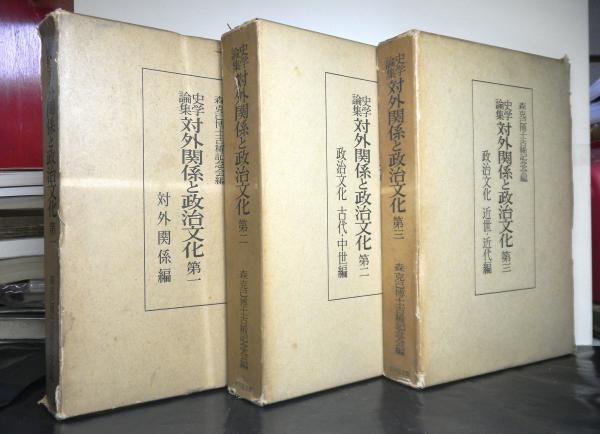 史学論集 対外関係と政治文化 第一
森克己博士古稀記念会編
史学論集 対外関係と政治文化 第一
対外関係編
史学論集 対外関係と政治文化 第二
森克己博士古稀記念会編
史学論集 対外関係と政治文化 第二
政治文化 古代・中世編
史学論集 対外関係と政治文化 第三
森克己博士古稀記念会編
森克己博士古稀記念会編
史学論集 対外関係と政治文化 第三
政治文化 近世・近代編